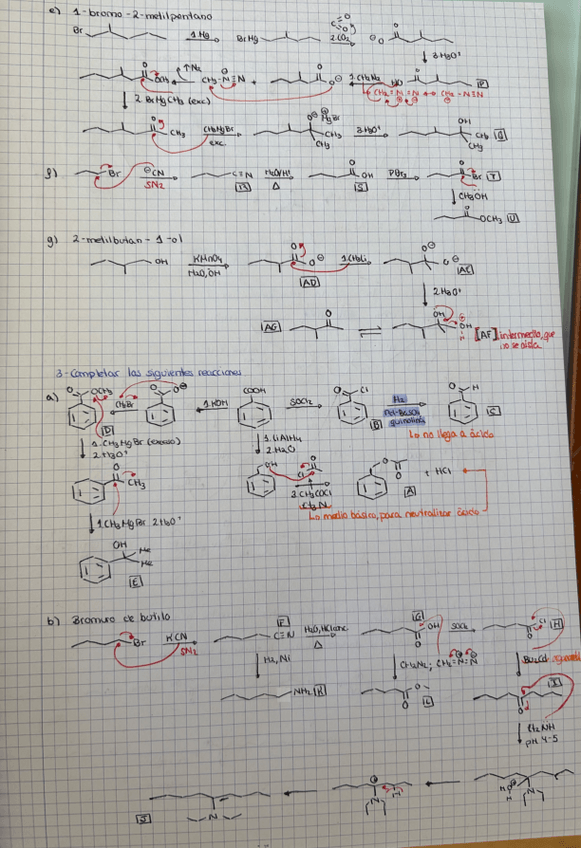 e) 1-bromo-2-metilpentano
Br 1.Hg BrHg 2.CO₂ 3.H₃O⁺
OCH₃ ↑N₂ CH₃-N≡N + O⊖ 1.CH₂N₂ HO P
CH₂=N=N ↔ CH₂-N≡N
2 BrHgCH₃ (exc)
CH₃ CH₃HgBr exc. O⊖ HgBr CH₃ CH₃ 3.H₃O⁺ OH CH₃ CH₃ Q
f) Br ⊖CN SN2 C≡N R H₂O/H⁺ Δ O OH S PBr₃ O Br T
CH₃OH
O OCH₃ U
g) 2-metilbutan-1-ol
OH KMnO₄ H₂O,OH O O⊖ AD 1.CH₃Li O⊖ O⊖ AE
2.H₃O⁺
AG O OH OH H [AF] intermedio, que
no se aísla
3-Completar las siguientes reacciones
a) O OCH₃ D CH₃Br O O⊖ 1.KOH COOH SOCl₂ O Cl B H₂ Pd-BaSO₄ quinolina O H C
↳ no llega a ácido
1.CH₃HgBr (exceso)
2.H₃O⁺
1.LiAlH₄
2.H₂O
O CH₃ OH Cl O 2.CH₃COCl Et₃N O O A + HCl
↳ medio básico, para neutralizar ácido
1.CH₃HgBr 2.H₃O⁺
OH Me Me E
b) Bromuro de butilo
Br KCN SN2 F C≡N H₂O, HCl conc Δ G OH O SOCl₂ Cl O H
H₂, Ni CH₂N₂; CH₂=N=N Bu₂Cd
NH₂ K O O L O I
Et₂NH
pH 4-5
J N N H HO H N